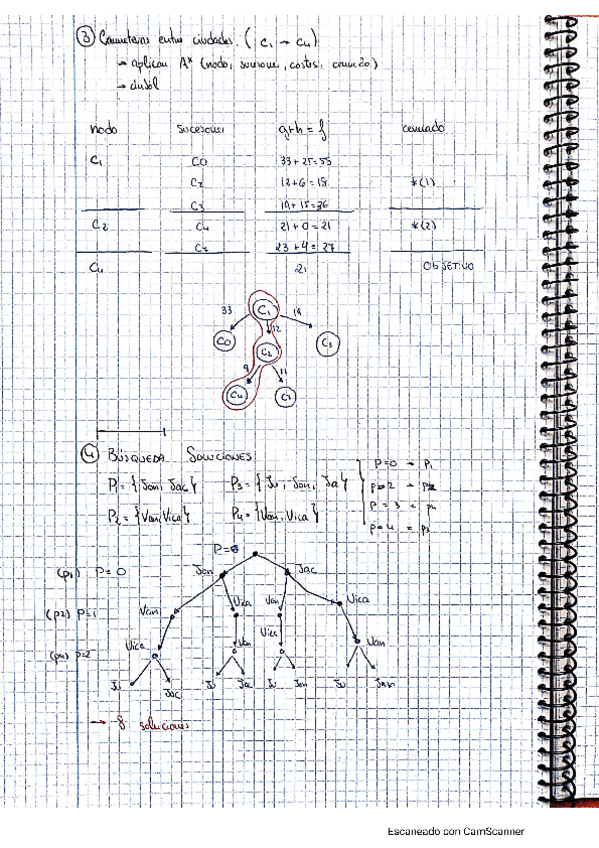 ③ Carreteras entre ciudades. (C1 → C4)
→ aplicar A* (nodo, sucesor, costes, cerrado)
→ árbol
nodo sucesores g+h = f cerrado
C1 C0 33+25=55
C2 12+6=18 *(1)
C3 19+15=36
C2 C4 21+0=21 *(2)
23+4=27
C4 21 OBJETIVO
33 C1 19
12
C0 C2 C3
9 11
C4
④ BÚSQUEDA SOLUCIONES
P1 = {Jon, Jac} P3 = {Ju, Jon, Ja}
P2 = {Van, Vica} P4 = {Van, Vica}
P=0 → P1
P=2
P=3 = P4
P=4 = P3
P=0
(P1) P=0 Jon Jac
(P2) P=1 Van Vica Van Vica
(P4) P=2 Vica Van Vica Van
Ju Jac Ju Jac Ju Jon Ju Jon
→ 8 soluciones
Escaneado con CamScanner